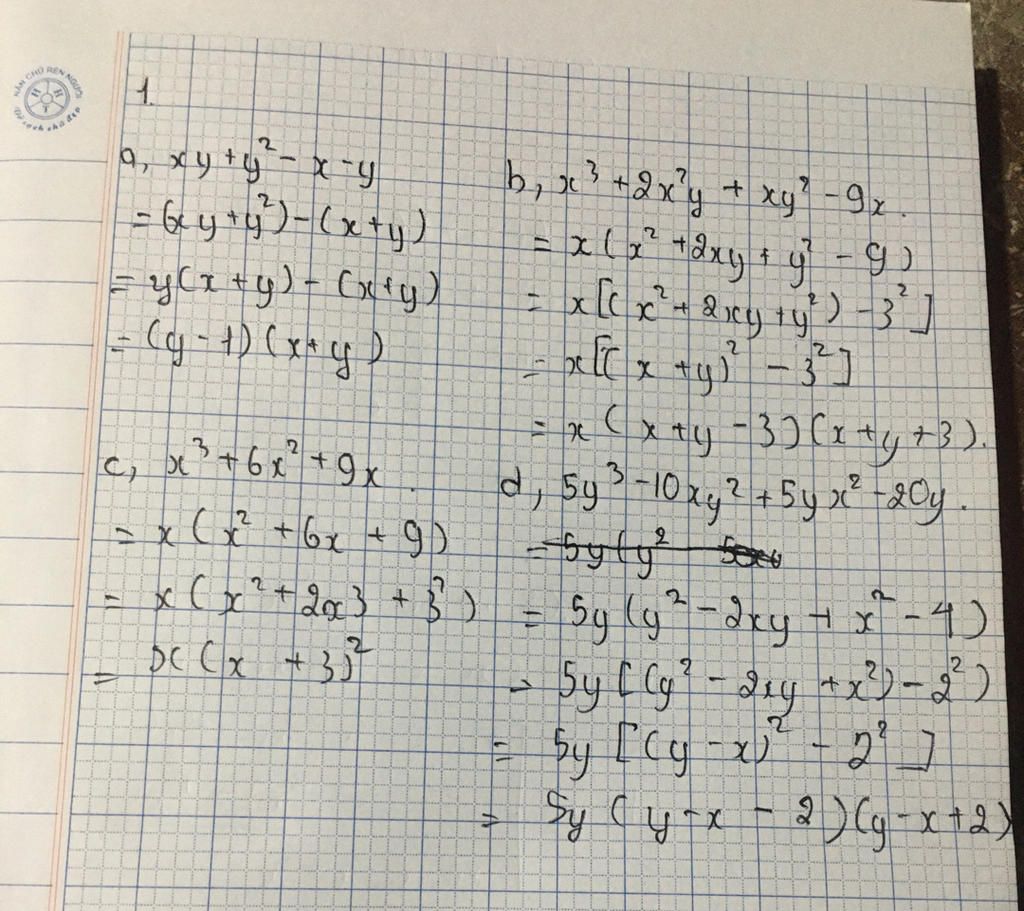 NẮN CHỮ RÈN NGƯỜI
H H T
Vở sạch chữ đẹp
1.
a, xy + y² - x - y
= (xy + y²) - (x + y)
= y(x + y) - (x + y)
= (y - 1)(x + y)
b, x³ + 2x²y + xy² - 9x.
= x(x² + 2xy + y² - 9)
= x[(x² + 2xy + y²) - 3²]
= x[(x + y)² - 3²]
= x(x + y - 3)(x + y + 3).
c, x³ + 6x² + 9x.
= x(x² + 6x + 9)
= x(x² + 2x3 + 3²)
= x(x + 3)²
d, 5y³ - 10xy² + 5yx² - 20y.
= 5y(y²
= 5y(y² - 2xy + x² - 4)
= 5y[(y² - 2xy + x²) - 2²)
= 5y[(y - x)² - 2²]
= 5y(y - x - 2)(y - x + 2)